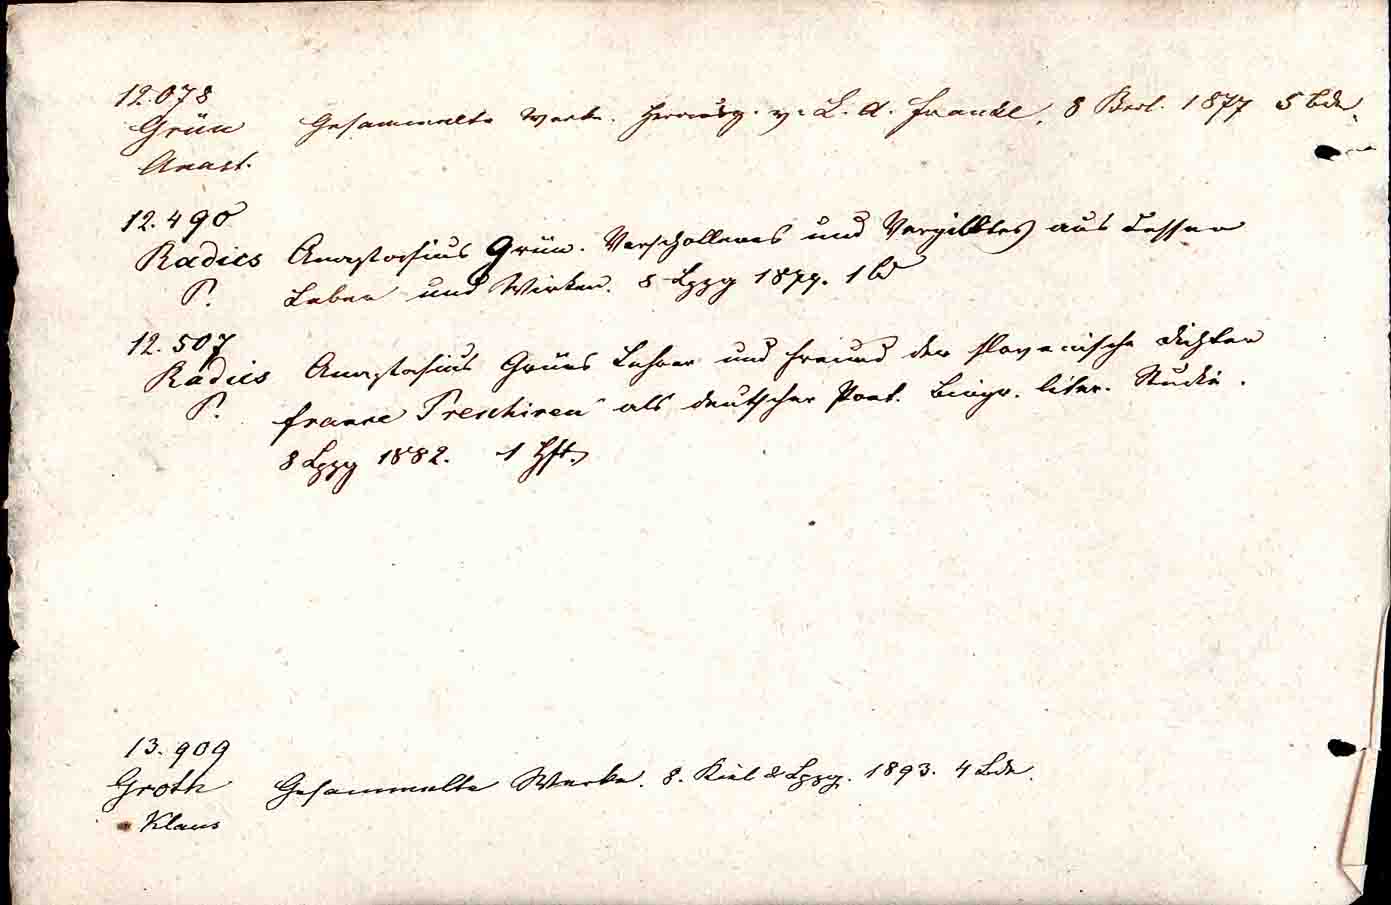 12.078
Grün Gesammelte Werke. Herausg. v. L. A. Frankl. 8 Berl. 1877 5 Bde.
Anast.
12.490
Radics Anastasius Grün. Verschollenes und Vergilbtes aus dessen
P. Leben und Wirken. 8 Lpzg 1879. 1 Bd
12.507
Radics Anastasius Grüns Lehrer und Freund der slovenische Dichter
P. France Preschiren als deutscher Poet. Biogr. liter. Studie.
8 Lpzg 1882. 1 Hft.
13.909
Groth Gesammelte Werke. 8. Kiel & Lpzg. 1893. 4 Bde.
Klaus